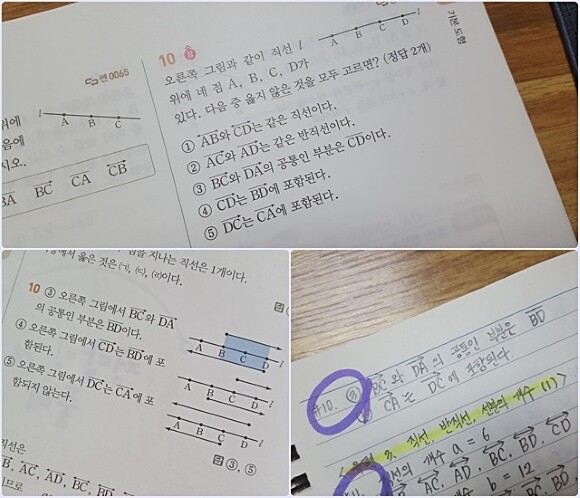 기본 도형
펜 0065
위에
A B C l
음에
시오.
BA BC CA CB
10 상
오른쪽 그림과 같이 직선 l
위에 네 점 A, B, C, D가
있다. 다음 중 옳지 않은 것을 모두 고르면? (정답 2개)
A B C D l
① AB와 CD는 같은 직선이다.
② AC와 AD는 같은 반직선이다.
③ BC와 DA의 공통인 부분은 CD이다.
④ CD는 BD에 포함된다.
⑤ DC는 CA에 포함된다.
지나는 직선은 1개이다.
에서 옳은 것은 (ㄱ), (ㄷ), (ㄹ)이다.
10 ③ 오른쪽 그림에서 BC와 DA
의 공통인 부분은 BD이다.
④ 오른쪽 그림에서 CD는 BD에 포
함된다.
⑤ 오른쪽 그림에서 DC는 CA에 포
함되지 않는다.
A B C D l
A B C D l
A B C D l
답 ③, ⑤
직선은
AC, AD, BC, BD
#10. ③ BC와 DA의 공통인 부분은 BD
CA는 DC에 포함된다
3. 직선, 반직선, 선분의 개수 (1) >
개수 a = 6
AC, AD, BC, BD, CD
개수 b = 12